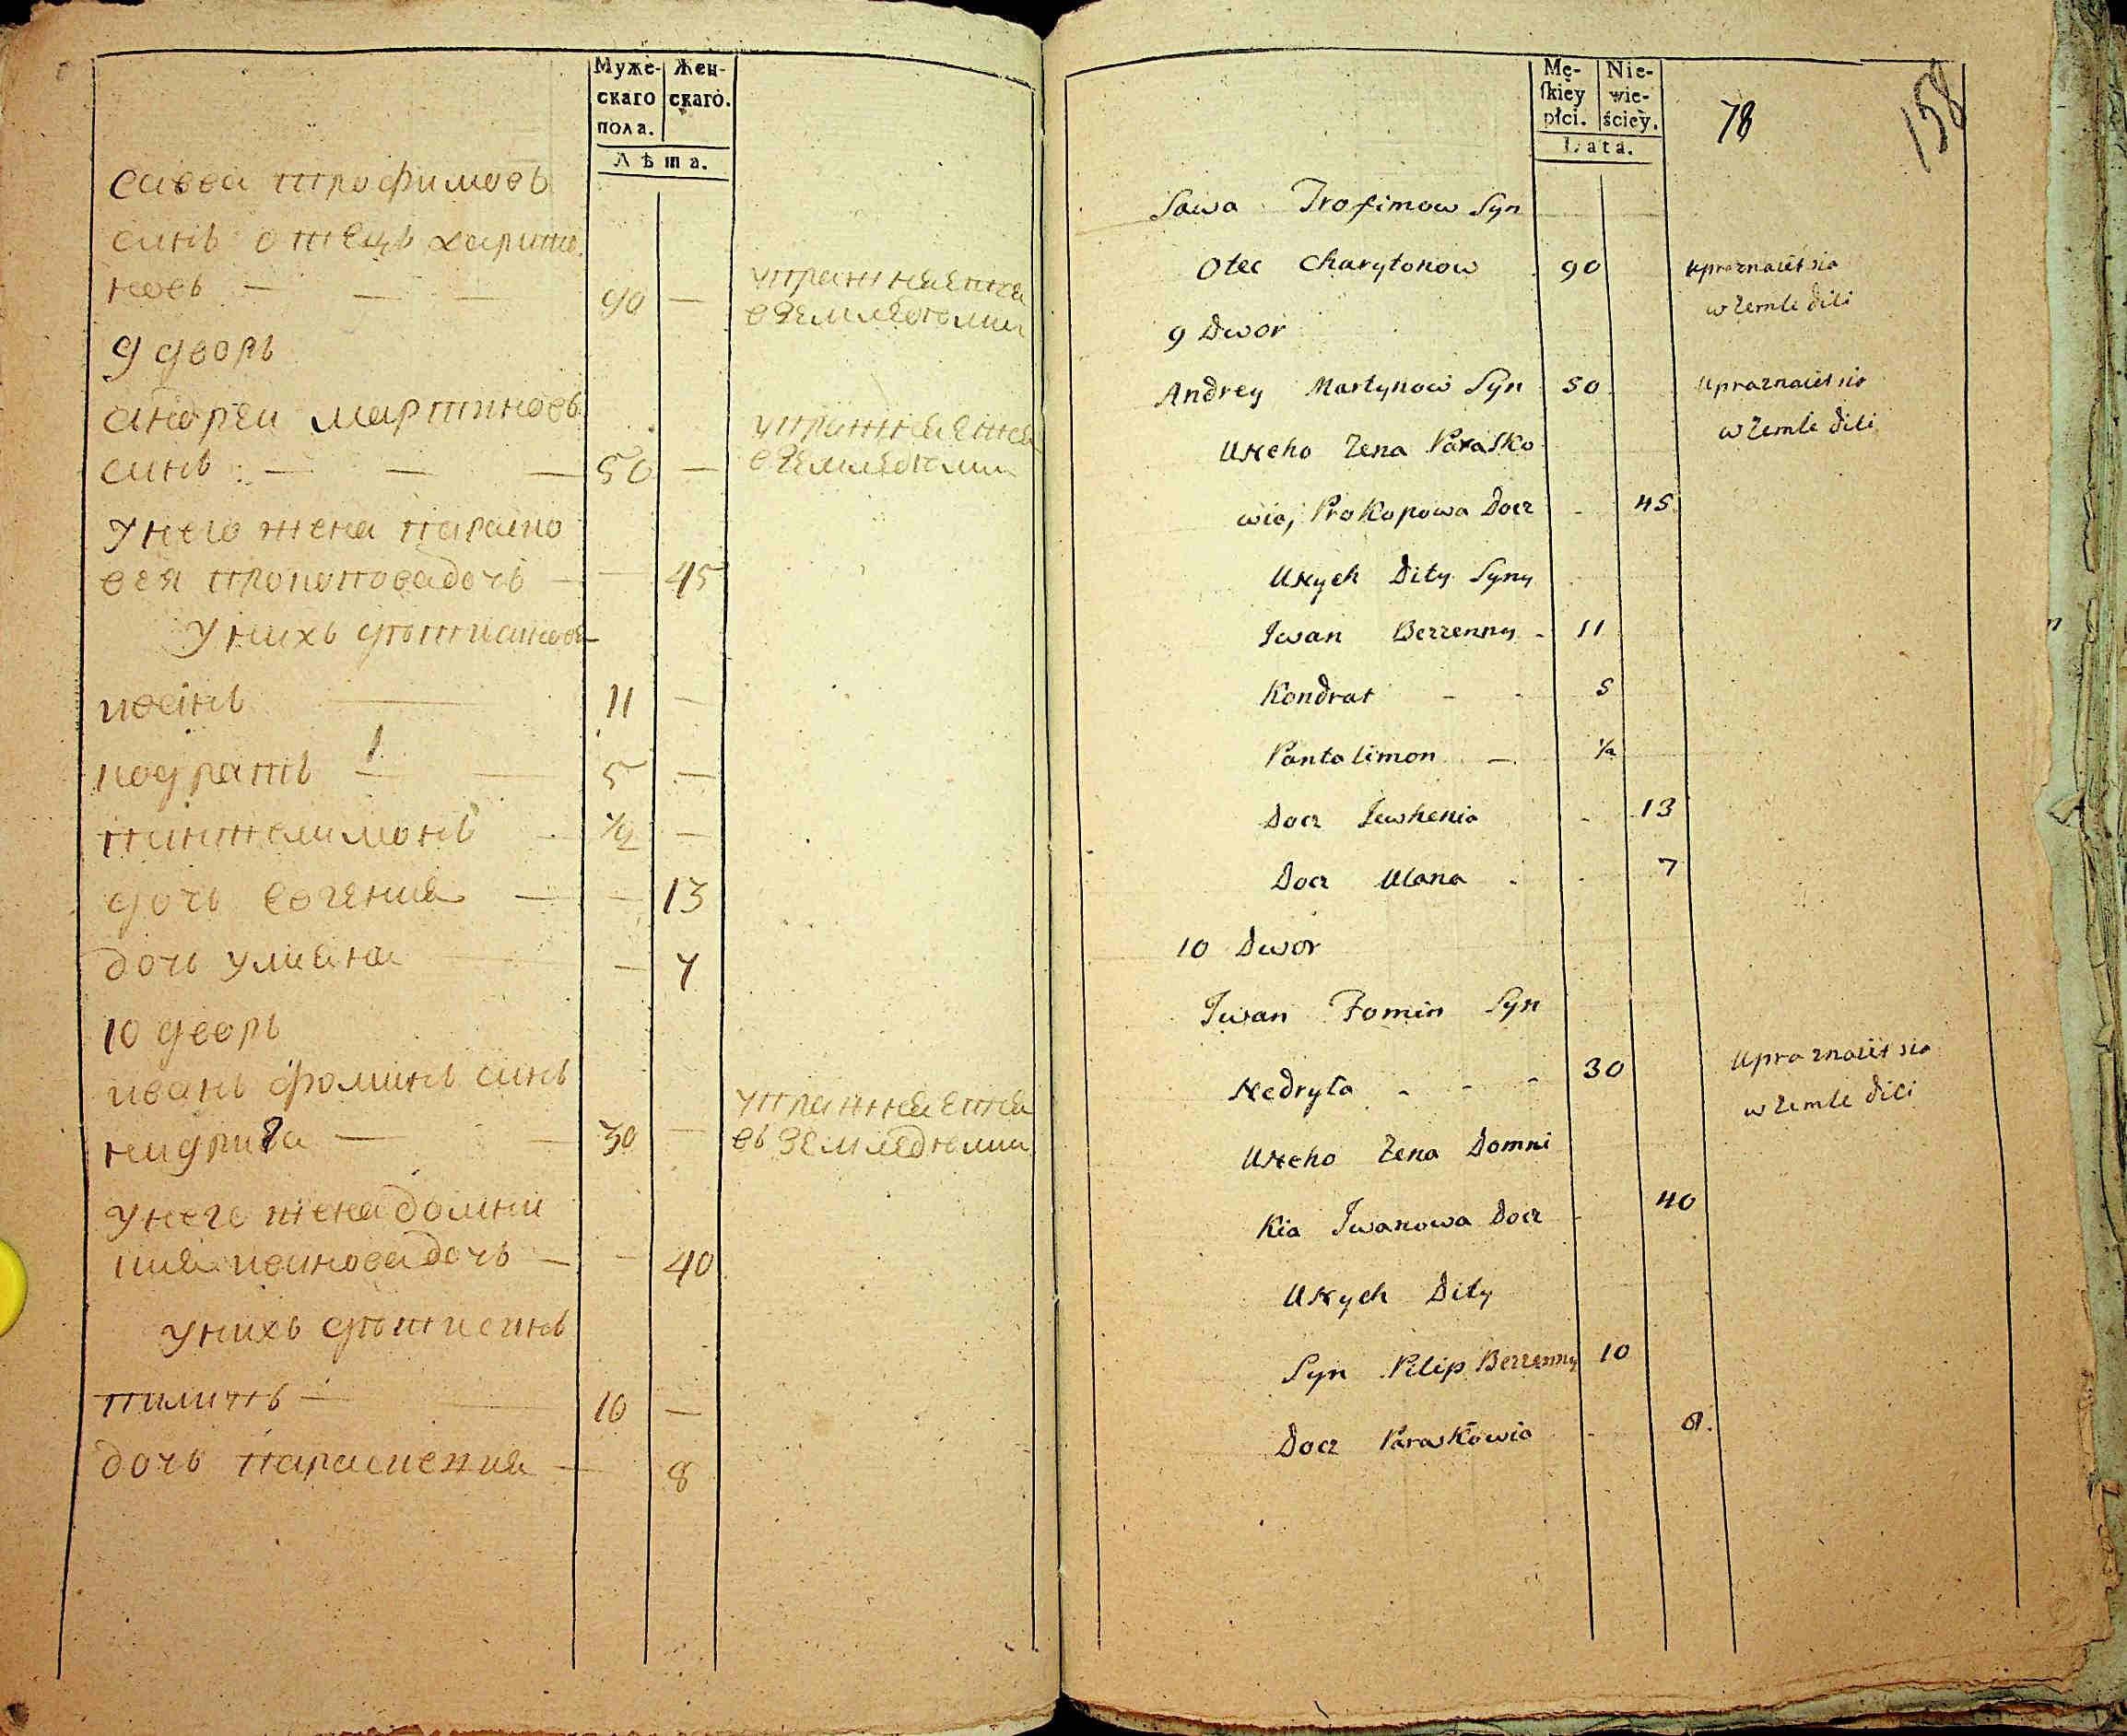 Муже-
скаго
пола.
Жен-
скаго.
Лѣта.
савва трофимовъ
синъ отецъ харито
новъ — — — 90 —
упражнаятса
в земледелии
9 дворъ
андреи мартиновъ
синъ: — — — 50 —
упражнаетса
в земледелии
у него жена параско
вея прокопова дочь — — 45
у нихъ дѣти синове
иванъ — 11 —
кодратъ — — 5 —
пантелимонъ - 1/2 —
дочь евгениа — — 13
дочь улиана — — 7
10 дворъ
иванъ фоминъ синъ
нидрига — — 30 —
упражнаетса
въ земледелии
у него жена домни
киа иванова дочь — — 40
у нихъ дѣти синъ
пилипъ — 10 —
дочь параскевиа — 8
Mę-
ſkiey
płci.
Nie-
wie-
ściey.
Lata.
78
158
Sawa Trofimow Syn
Otec Charytonow 90
upraznaiet sia
w zemle dili
9 Dwor
Andrey Martynow Syn 50
upraznaiet sia
w zemle dili
Uneho Zena Parasko
wia, Prokopowa Docz - 45
Unych Dity Syny
Jwan Bezzenny - 11
Kondrat - - 5
Pantalimon — 1/2
Docz Jewhenia - 13
Docz Ulana - - 7
10 Dwor
Jwan Fomin Syn
Nedryla - - - 30
upraznaiet sia
w zemle dili
Uneho Zena Domni
Kia Jwanowa Docz - 40
Unych Dity
Syn Pilip Bezzenny 10
Docz Paraskowia - 8.